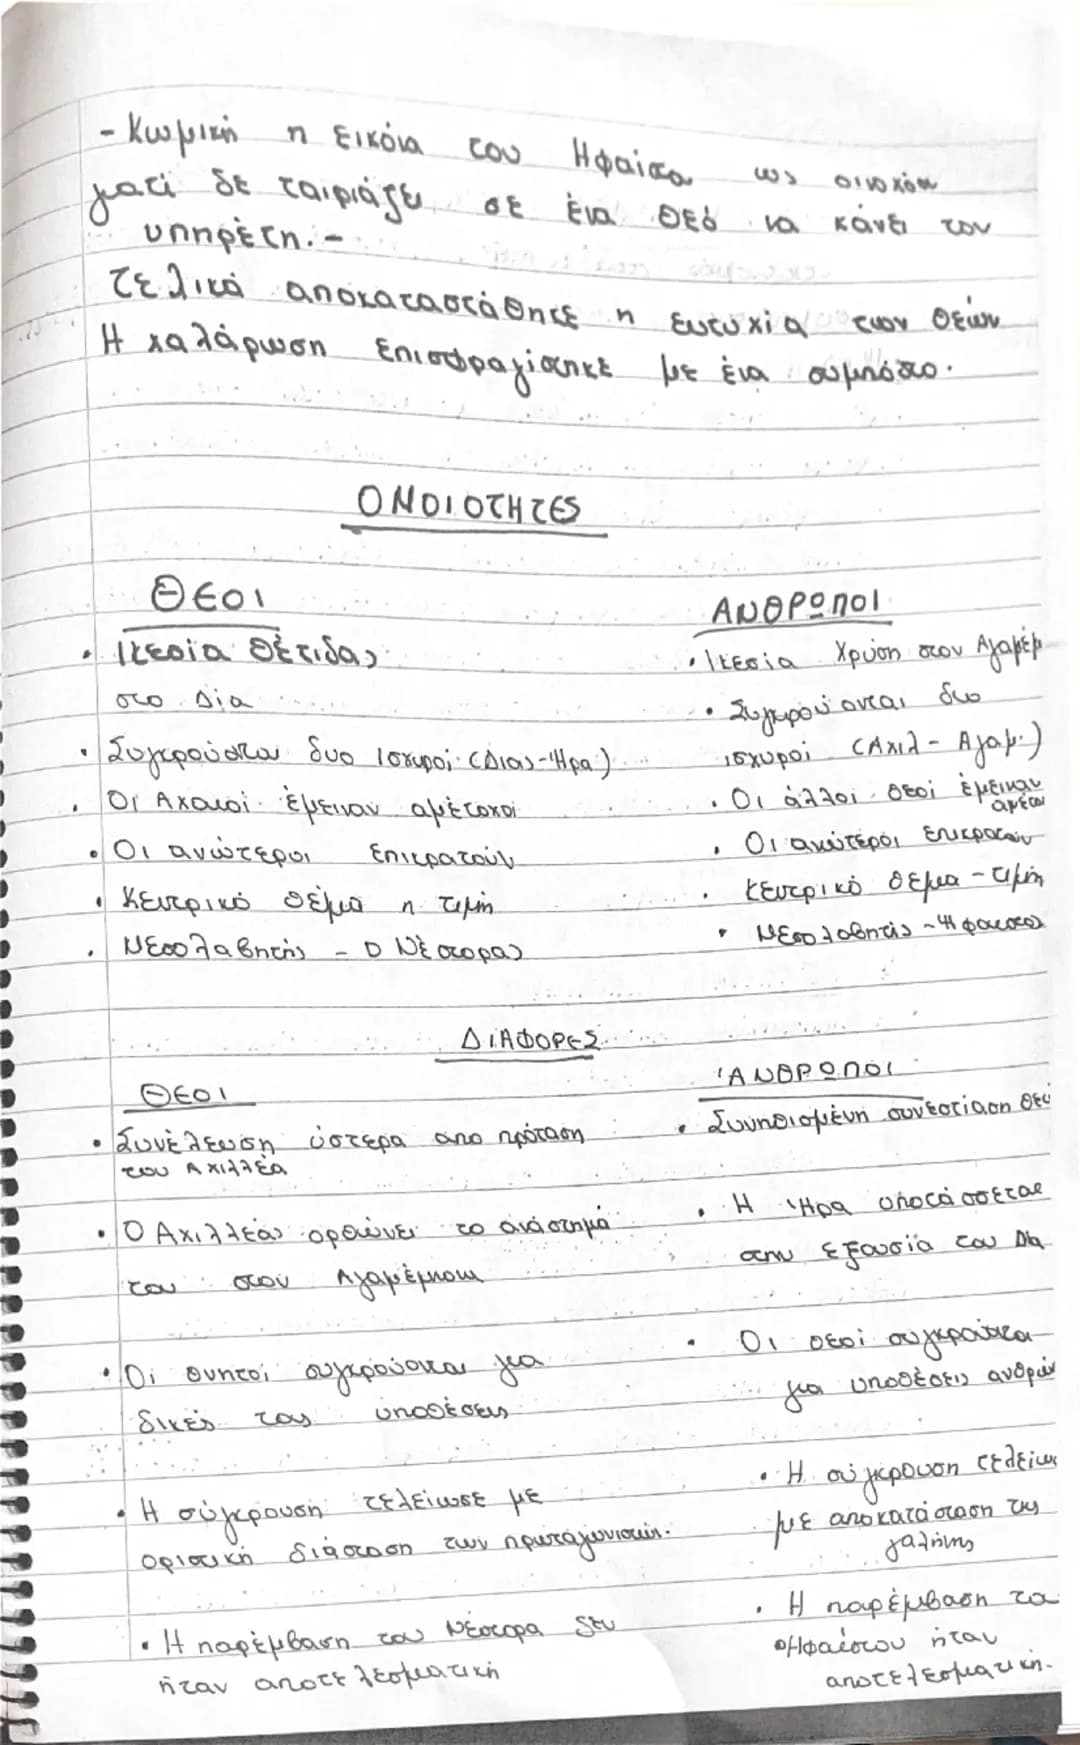 - Κωμική η εικόνα του Ηφαίστου ως οινοχόου
γιατί δε ταιριάζει σε ένα θεό να κάνει τον
υπηρέτη.-
Τελικά αποκαταστάθηκε η ευτυχία των θεών
Η χαλάρωση επισφραγίστηκε με ένα συμπόσιο.
ΟΜΟΙΟΤΗΤΕΣ
ΘΕΟΙ
• Ικεσία Θέτιδας
στο Δία
• Συγκρούονται δυο ισχυροί (Δίας-Ήρα)
• Οι Αχαιοί έμειναν αμέτοχοι
• Οι ανώτεροι επικρατούν
• Κεντρικό θέμα η τιμή
• Μεσολαβητής - Ο Νέστορας
ΑΝΘΡΩΠΟΙ
• Ικεσία Χρύση στον Αγαμέμ
• Συγκρούονται δυο
ισχυροί (Αχιλ - Αγαμ.)
• Οι άλλοι θεοί έμειναν
αμέτοχοι
• Οι ανώτεροι επικρατούν
• Κεντρικό θέμα - τιμή
• Μεσολαβητής - Ήφαιστος
ΔΙΑΦΟΡΕΣ
ΘΕΟΙ
• Συνέλευση ύστερα απο πρόταση
του Αχιλλέα
• Ο Αχιλλέας ορθώνει το ανάστημά
του στον Αγαμέμνονα
• Οι θνητοί συγκρούονται για
δικές τους υποθέσεις
• Η σύγκρουση τελείωσε με
οριστική διάσταση των πρωταγωνιστών.
• Η παρέμβαση του Νέστορα δεν
ήταν αποτελεσματική
ΆΝΘΡΩΠΟΙ
• Συνηθισμένη συνεστίαση θεώ
• Η Ήρα υποτάσσεται
στην εξουσία του Δία
• Οι θεοί συγκρούονται
για υποθέσεις ανθρώπ
• Η σύγκρουση τελείωσε
με αποκατάσταση της
γαλήνης
• Η παρέμβαση του
Ηφαίστου ήταν
αποτελεσματική.